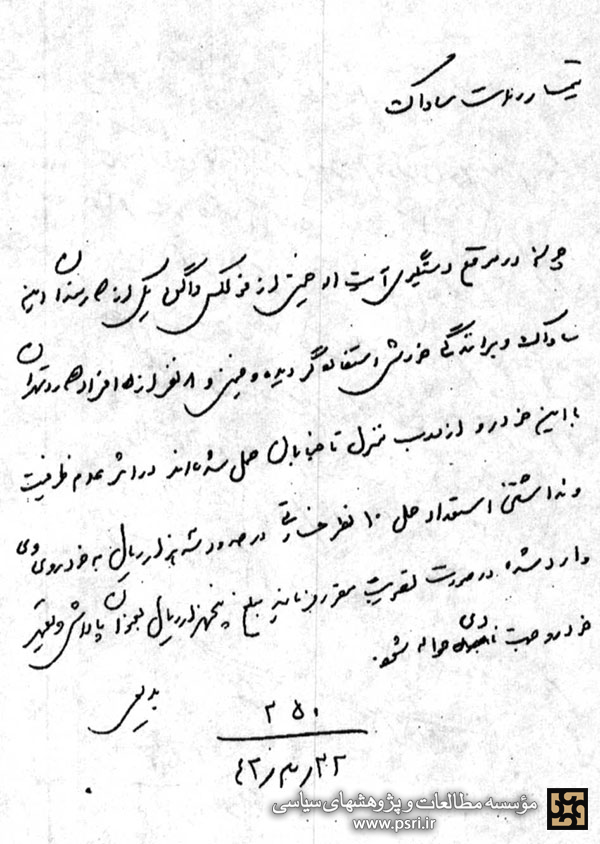 تیمسار ریاست ساواک
چون در موقع دستگیری آیت اله خمینی از فولکس واگن یکی از کارمندان این
ساواک و برانندگی خودش استفاده گردیده و خمینی و ۸ نفر از افراد کارد تهران
با این خودرو از درب منزل تا خیابان حمل شده‌اند در اثر عدم ظرفیت
و نداشتن استعداد حمل ۱۰ نفر خسارتی در حدود سه هزار ریال به خودروی وی
وارد شده در صورت تصویب مقرر فرمایند مبلغ پنجهزار ریال بعنوان پاداش و تعمیر
خودرو جهت نامبرده حواله شود.
بدیعی
۲۵۰
۴۲/۳/۲۲
مؤسسه مطالعات و پژوهشهای سیاسی
www.psri.ir